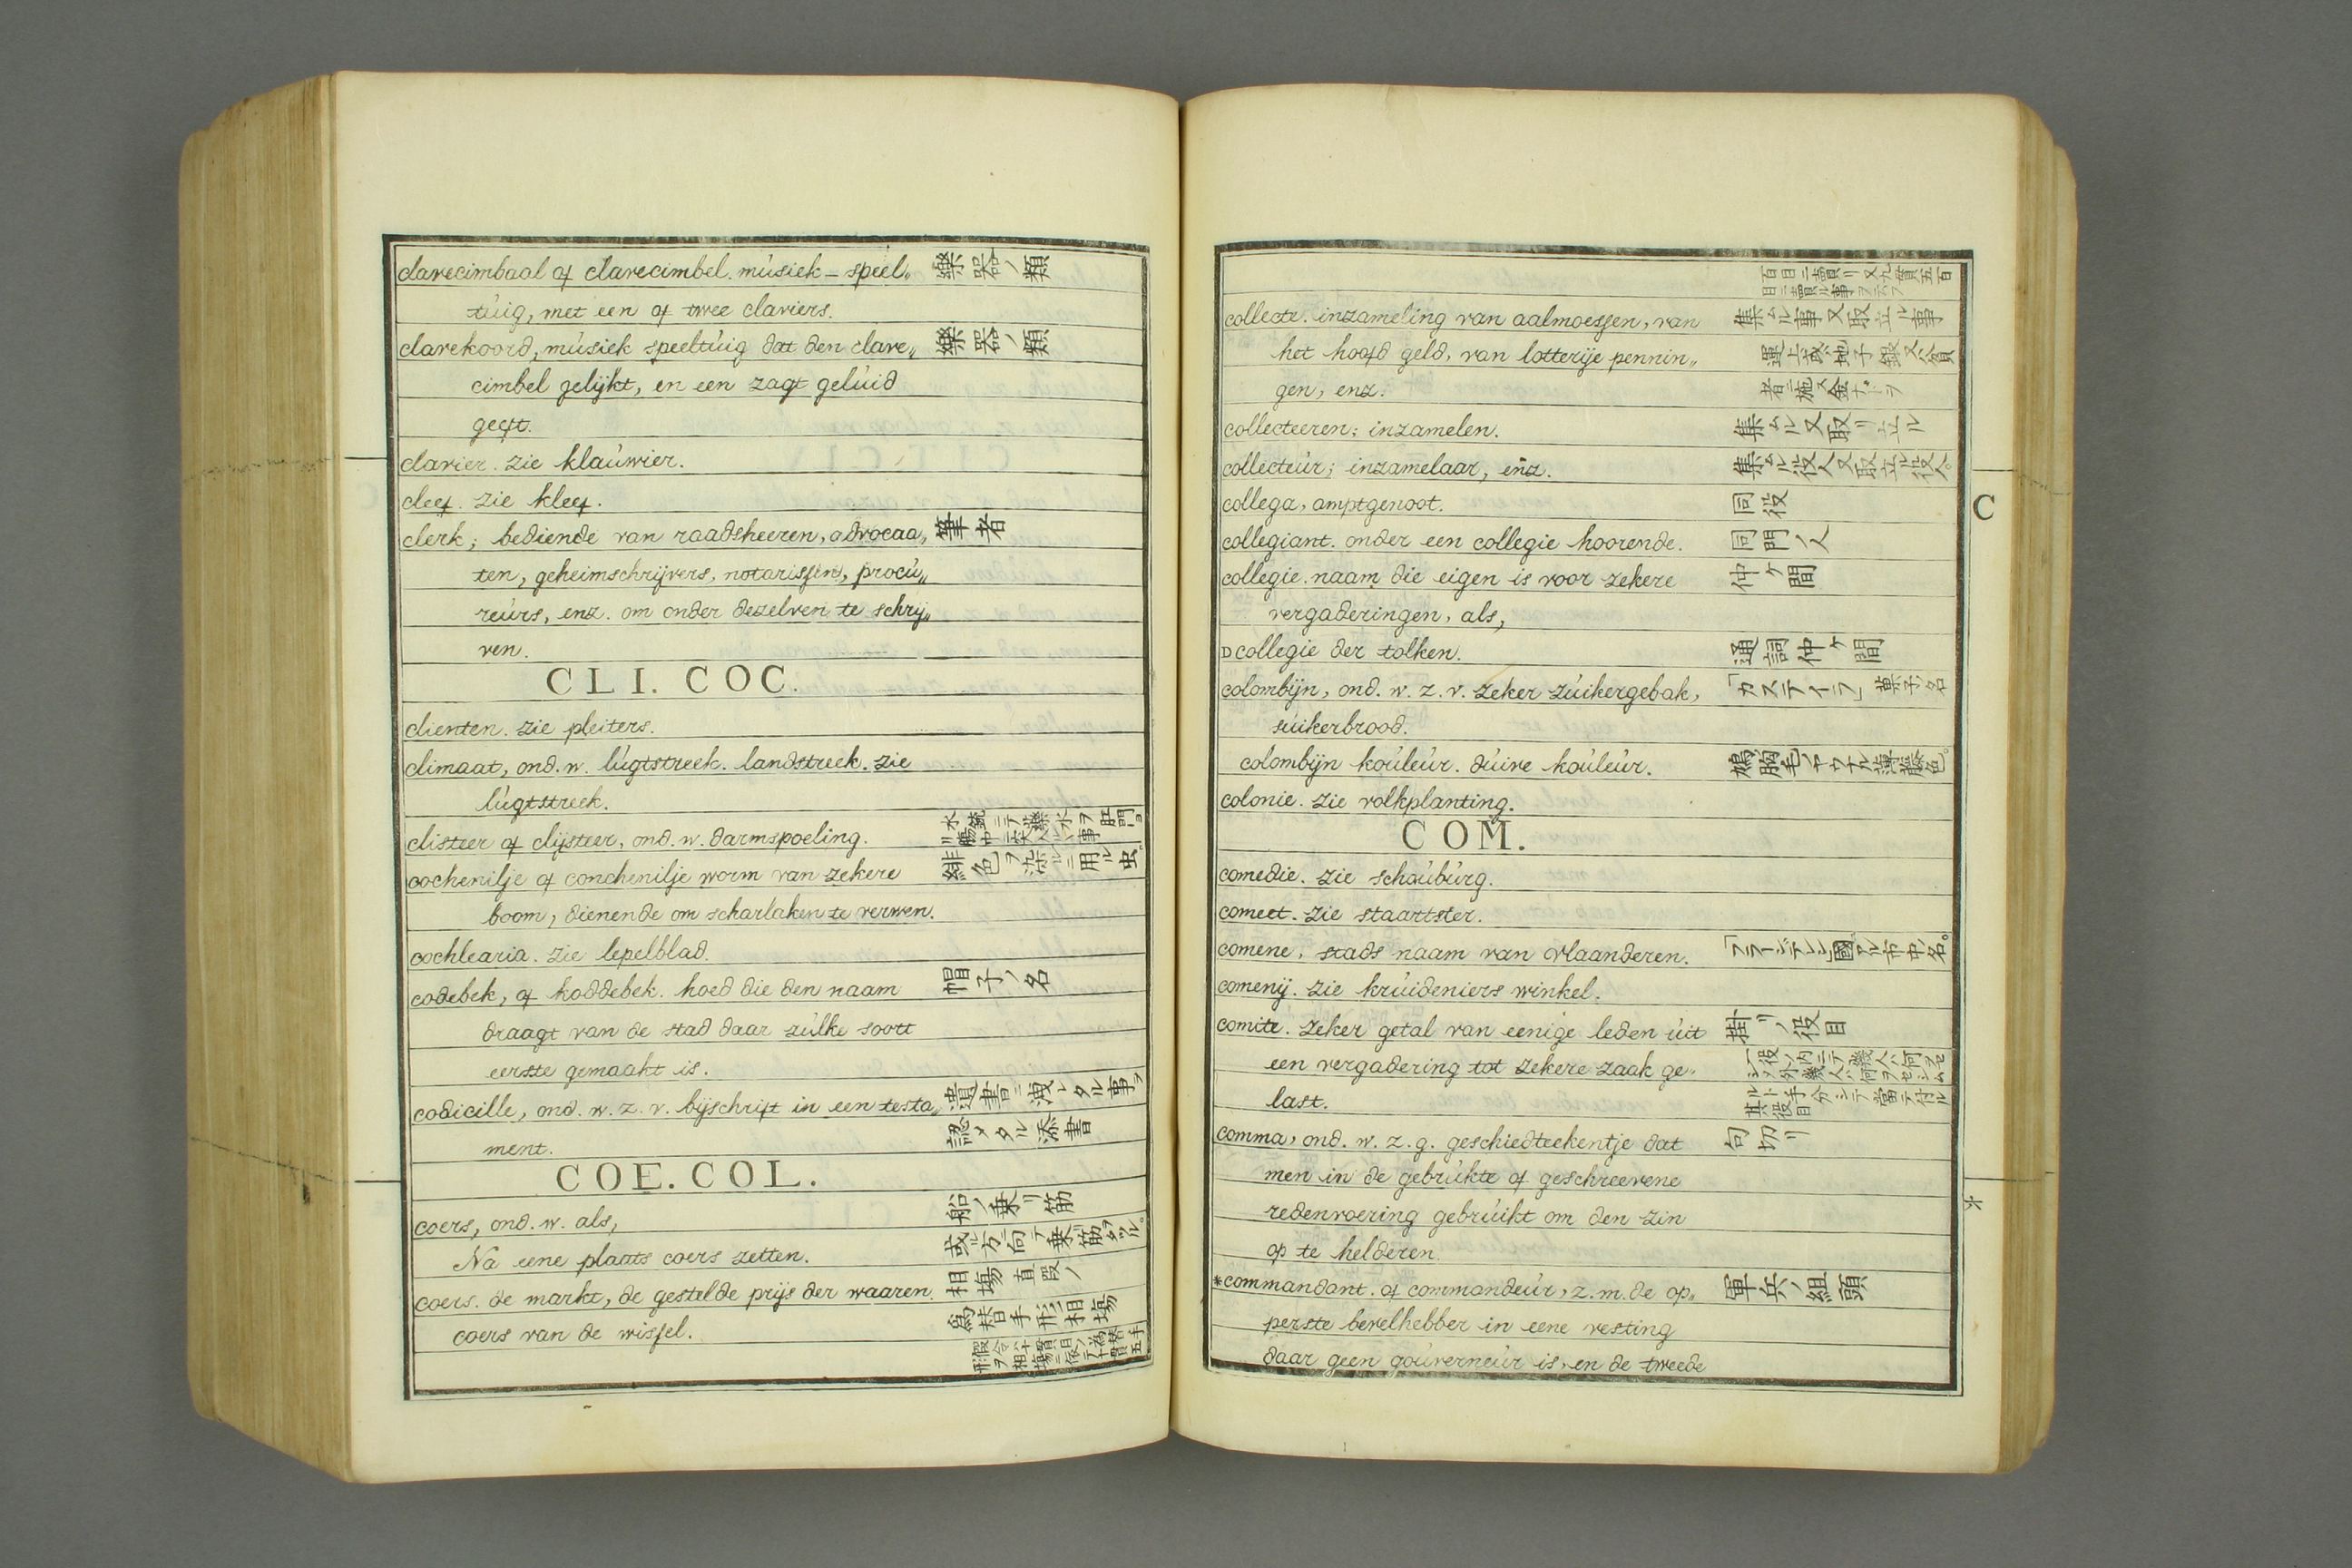 clavecimbaal of clavecimbel. músiek-speel„ 樂器ノ類
túig, met een of twee claviers.
clavekoord, músiek speeltúig dat den clave„ 樂器ノ類
cimbel gelijkt, en een zagt gelúid
geeft.
clavier. zie klaúwier.
cleef. zie kleef.
clerk; bediende van raadsheeren, advocaa„ 筆者
ten, geheimschrijvers, notarissen, procú„
reúrs, enz. om onder dezelven te schrij„
ven.
CLI. COC.
clienten. zie pleiters.
climaat, ond. w. lúgtstreek. landstreek. zie
lúgtstreek.
clisteer of clijsteer, ond. w. darmspoeling.
cochenilje of conchenilje worm van zekere 緋色ヲ染ルニ用ル虫
boom, dienende om scharlaken te verwen.
cochlearia. zie lepelblad.
codebek, of koddebek. hoed die den naam 帽子ノ名
draagt van de stad daar zúlke soort
eerste gemaakt is.
codicille, ond. w. z. v. bijschrift in een testa„ 遺書ニ洩レタル事ヲ
ment. 認メタル添書
COE. COL.
coers, ond. w. als, 船ノ乗リ筋
Na eene plaats coers zetten.
coers. de markt, de gestelde prijs der waaren. 相場 直段ノ
coers van de wissel. 爲替手形ノ相場
collecte. inzameling van aalmoessen, van 集ムル事又取立ル事
het hoofd geld, van lotterije pennin„
gen, enz.
collecteeren; inzamelen. 集ムル又取リ立ル
collecteúr; inzamelaar, enz. 集ムル役人又取立ル役人。
collega, amptgenoot. 同役
collegiant. onder een collegie hoorende. 同門ノ人
collegie. naam die eigen is voor zekere 仲ケ間
vergaderingen, als,
D collegie der tolken. 通詞仲ケ間
colombijn, ond. w. z. v. zeker zúikergebak, 「カステイラ」菓子ノ名
súikerbrood.
colombijn koúleúr. dúive koúleúr. 鳩ノ胸毛ノヤウナル薄藤色。
colonie. zie volkplanting.
C
COM.
comedie. zie schaúbúrg.
comeet. zie staartster.
comene, stads naam van Vlaanderen.
comenij. zie krúideniers winkel.
comite. zeker getal van eenige leden úit 掛リノ役目
een vergadering tot zekere zaak ge„
last.
comma, ond. w. z. g. geschiedteekentje dat 句切リ
men in de gedrúkte of geschreevene
redenvoering gebrúikt om den zin
op te helderen.
*commandant. of commandeúr, z. m. de op„ 軍兵ノ組頭
perste bevelhebber in eene vesting
daar geen goúverneúr is, en de tweede